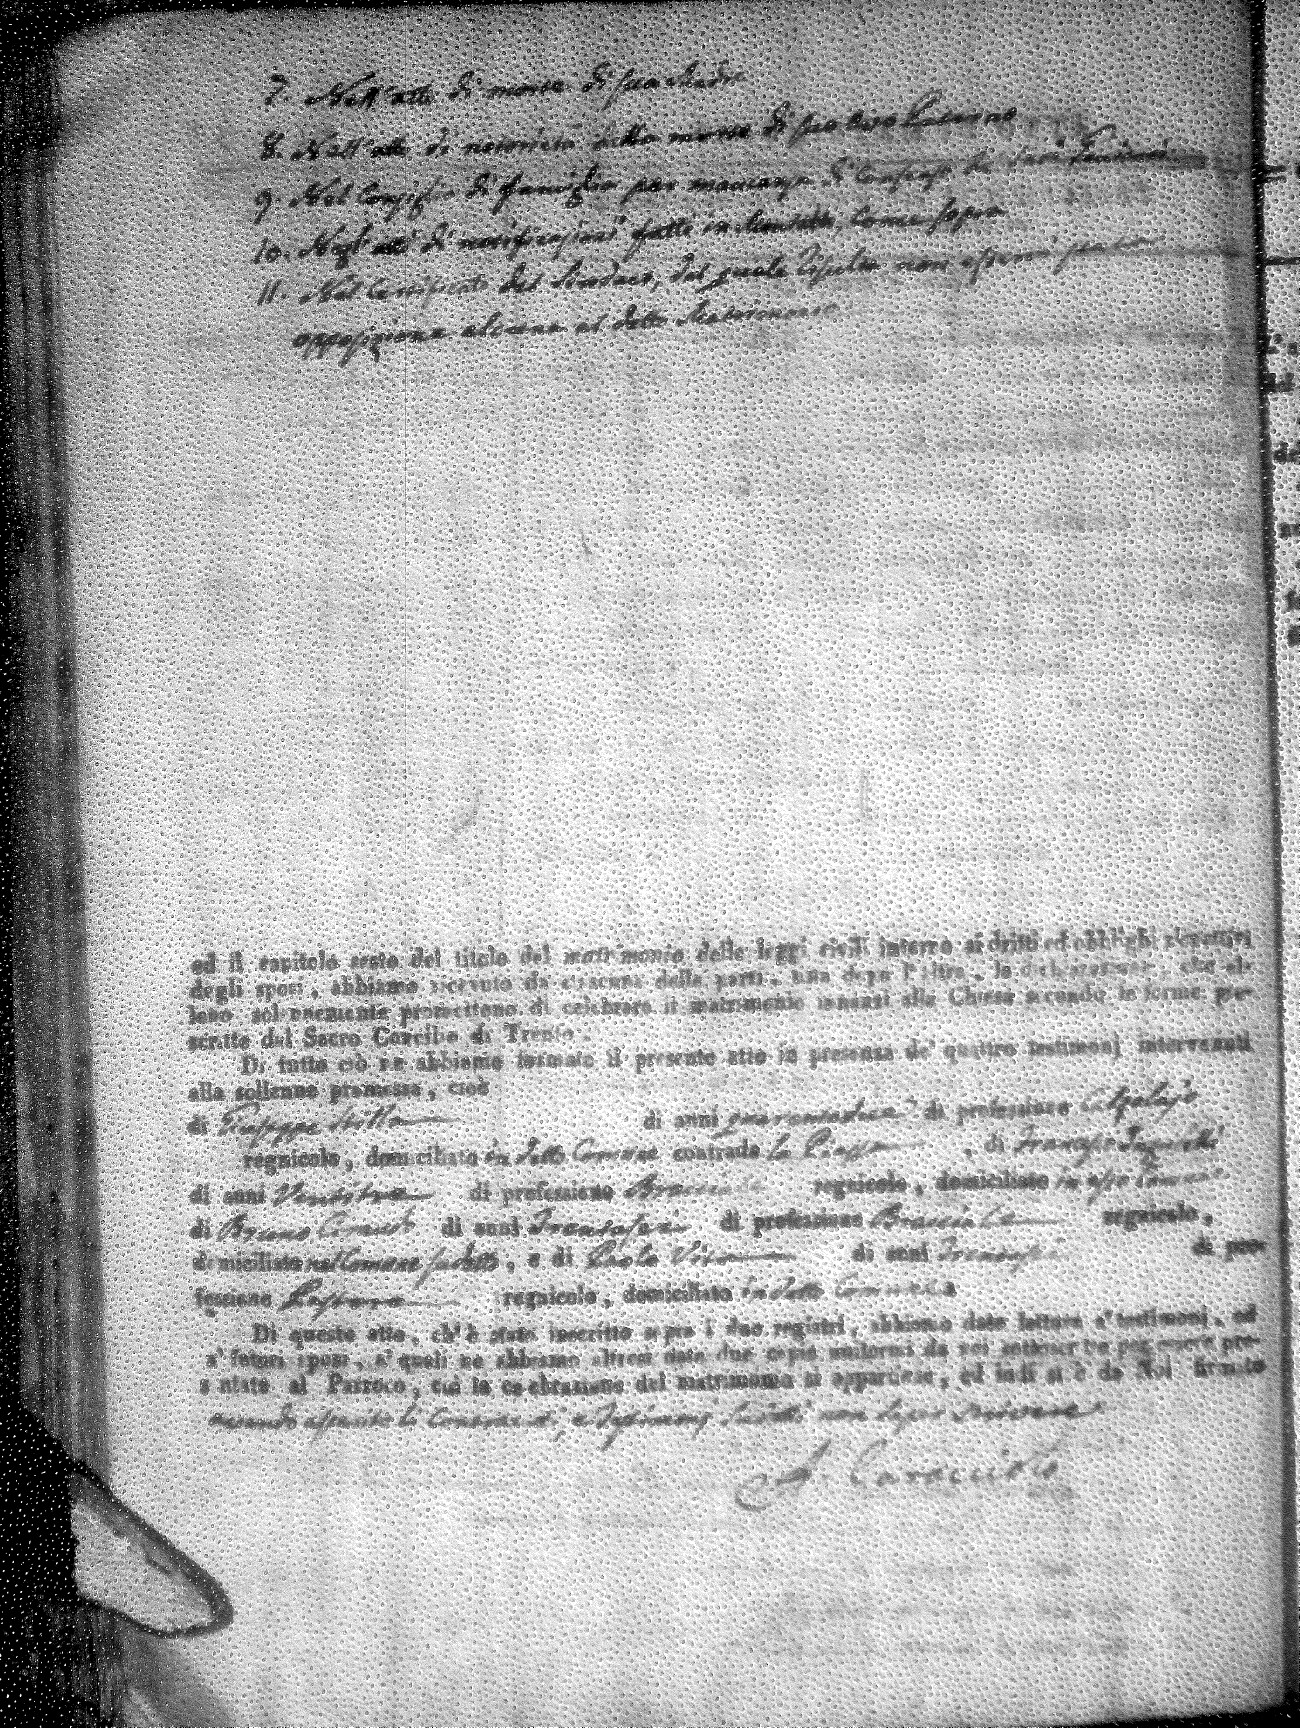 7. Nell'atto di morte di sua Madre
8. Nell'atto di notorietà della morte di suo Avo Paterno
9. Nel Consiglio di famiglia per mancanza di Consenso de'
10. Negl'atti di notificazioni fatte in Comune, come sopra
11. Nel Certificato del Sindaco, dal quale risulta non esservi stata
opposizione alcuna al detto Matrimonio
ed il capitolo sesto del titolo del matrimonio delle leggi civili intorno ai dritti ed obblighi rispettivi
degli sposi, abbiamo ricevuto da ciascuna delle parti, una dopo l'altra, la dichiarazione, che el-
leno solennemente promettono di celebrare il matrimonio innanzi alla Chiesa secondo le forme pre-
scritte dal Sacro Concilio di Trento.
Di tutto ciò ne abbiamo formato il presente atto in presenza de' quattro testimonj intervenuti
alla sollenne promessa, cioè
di Giuseppe di anni di professione
regnicolo, domiciliato in detto Comune contrada la Piazza, di Francesco
di anni Ventitre di professione Bracciale regnicolo, domiciliato in esso Comune
di Bruno di anni Trentasei di professione Bracciale regnicolo,
domiciliato nel Comune sudetto, e di Paolo di anni di pro-
fessione regnicolo, domiciliato in detto Comune
Di questo atto, ch'è stato inscritto sopra i due registri, abbiamo dato lettura a' testimonj, ed
a' futuri sposi, a' quali ne abbiamo altresì dato due copie uniformi da noi sottoscritte per essere pre-
sentate al Parroco, cui la celebrazione del matrimonio si appartiene, ed indi si è da Noi firmato
avendo asserito li Contraenti, e Testimonj suddetti non saper scrivere
Caracciolo